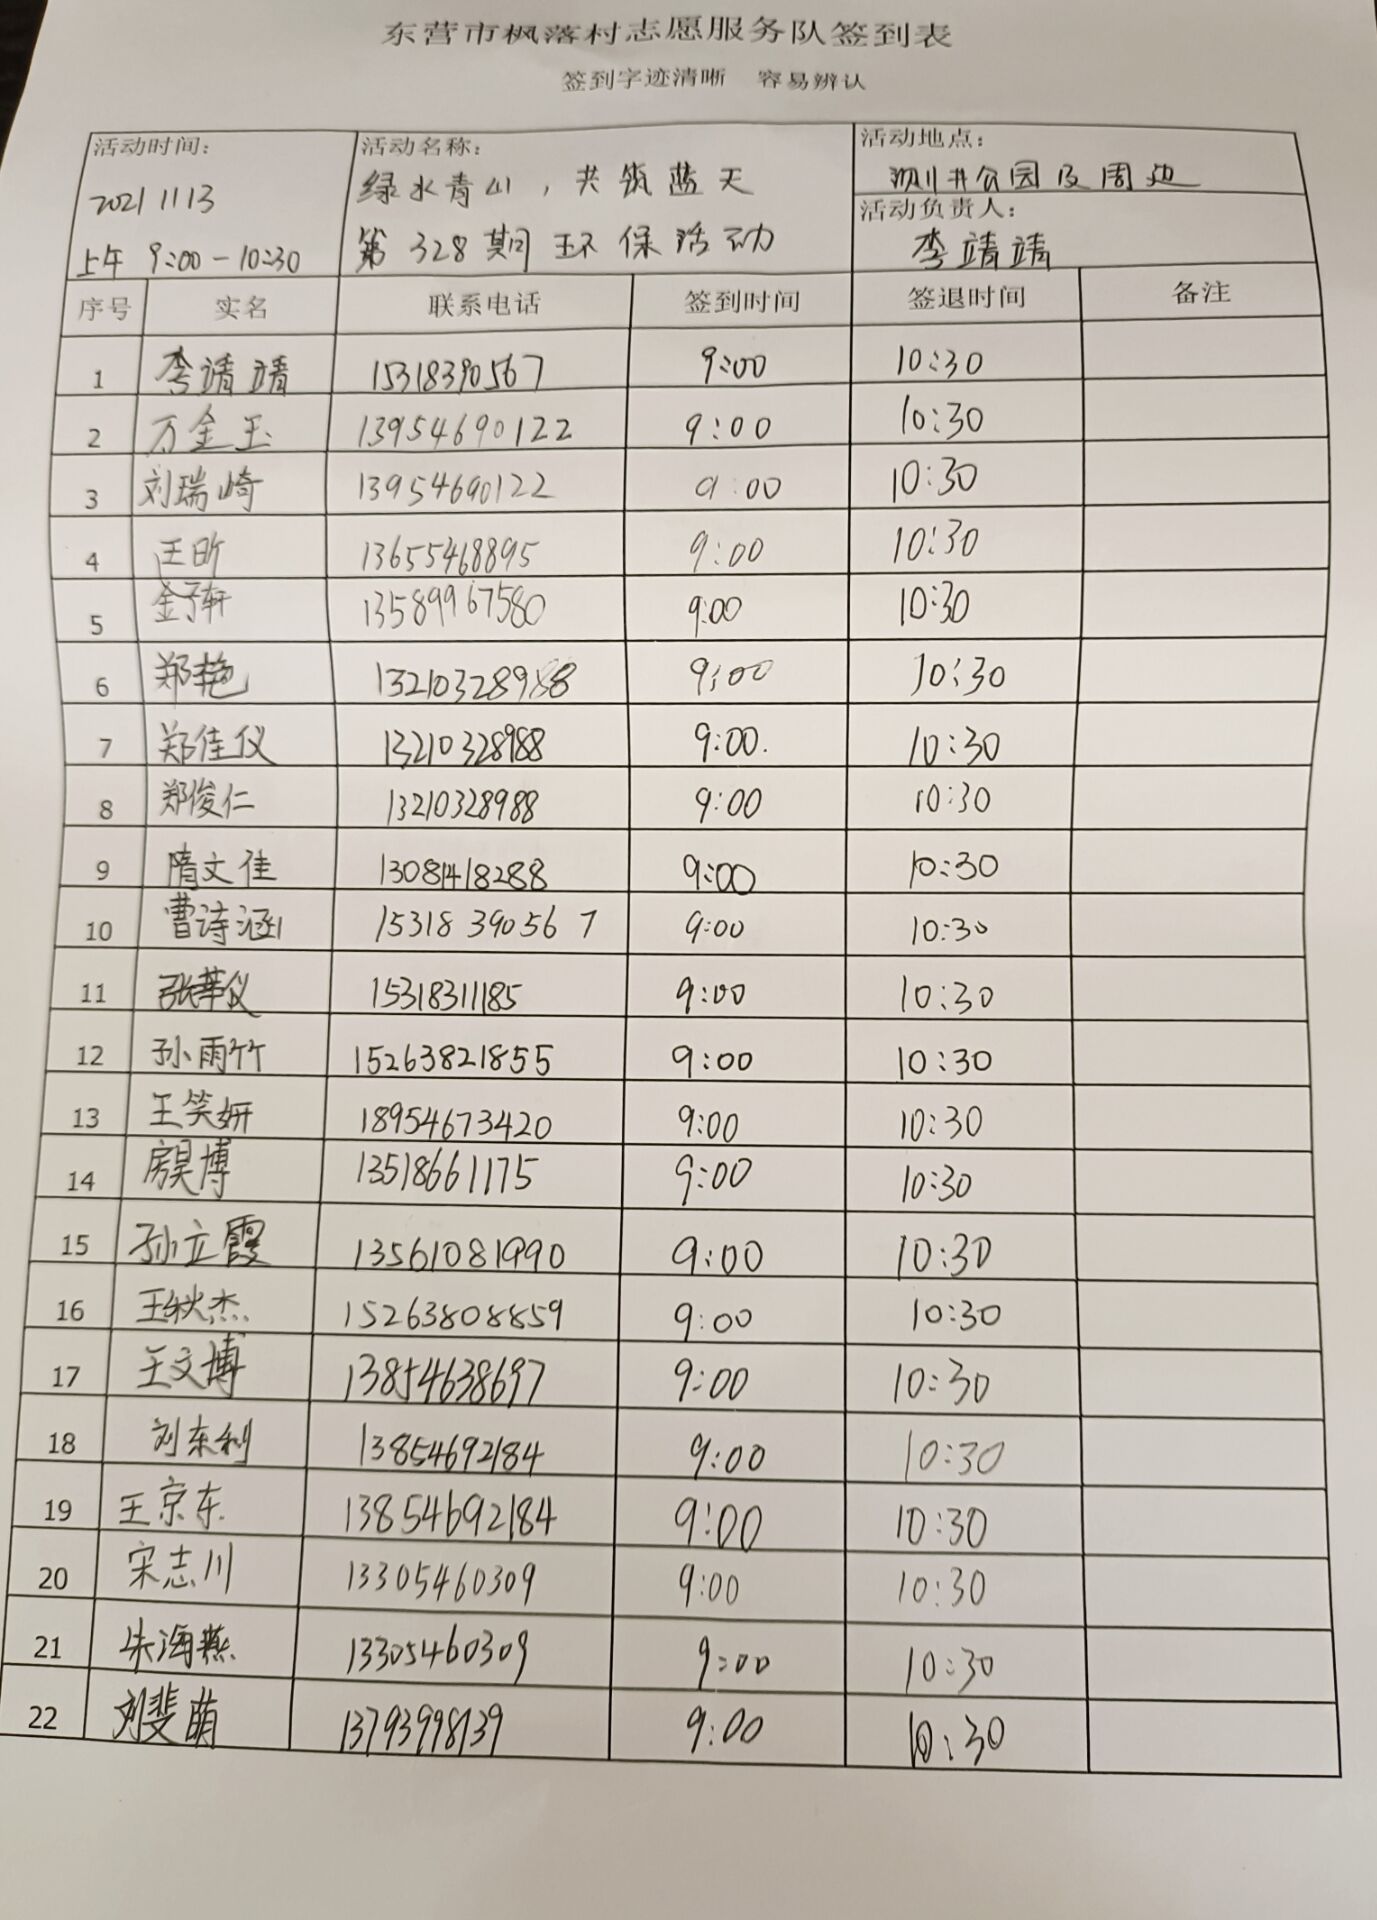 东营市枫落村志愿服务队签到表
签到字迹清晰 容易辨认
活动时间：
2021 11 13
上午 9:00-10:30
活动名称：
绿水青山，共筑蓝天
第328期环保活动
活动地点：
井公园及周边
活动负责人：
李靖靖
序号 实名 联系电话 签到时间 签退时间 备注
1 李靖靖 15318390567 9:00 10:30
2 万金玉 13954690122 9:00 10:30
3 刘瑞崎 13954690122 9:00 10:30
4 王昕 13655468895 9:00 10:30
5 金子轩 13589967580 9:00 10:30
6 郑艳 13210328988 9:00 10:30
7 郑佳仪 13210328988 9:00. 10:30
8 郑俊仁 13210328988 9:00 10:30
9 隋文佳 13081418288 9:00 10:30
10 曹诗涵 15318390567 9:00 10:30
11 张仪 15318311185 9:00 10:30
12 孙雨竹 15263821855 9:00 10:30
13 王笑妍 18954673420 9:00 10:30
14 房昊博 13518661175 9:00 10:30
15 孙立霞 13561081990 9:00 10:30
16 王秋杰 15263808859 9:00 10:30
17 王文博 13854638697 9:00 10:30
18 刘东利 13854692184 9:00 10:30
19 王京东 13854692184 9:00 10:30
20 宋志川 13305460309 9:00 10:30
21 朱海燕 13305460309 9:00 10:30
22 刘斐萌 13793998139 9:00 10:30